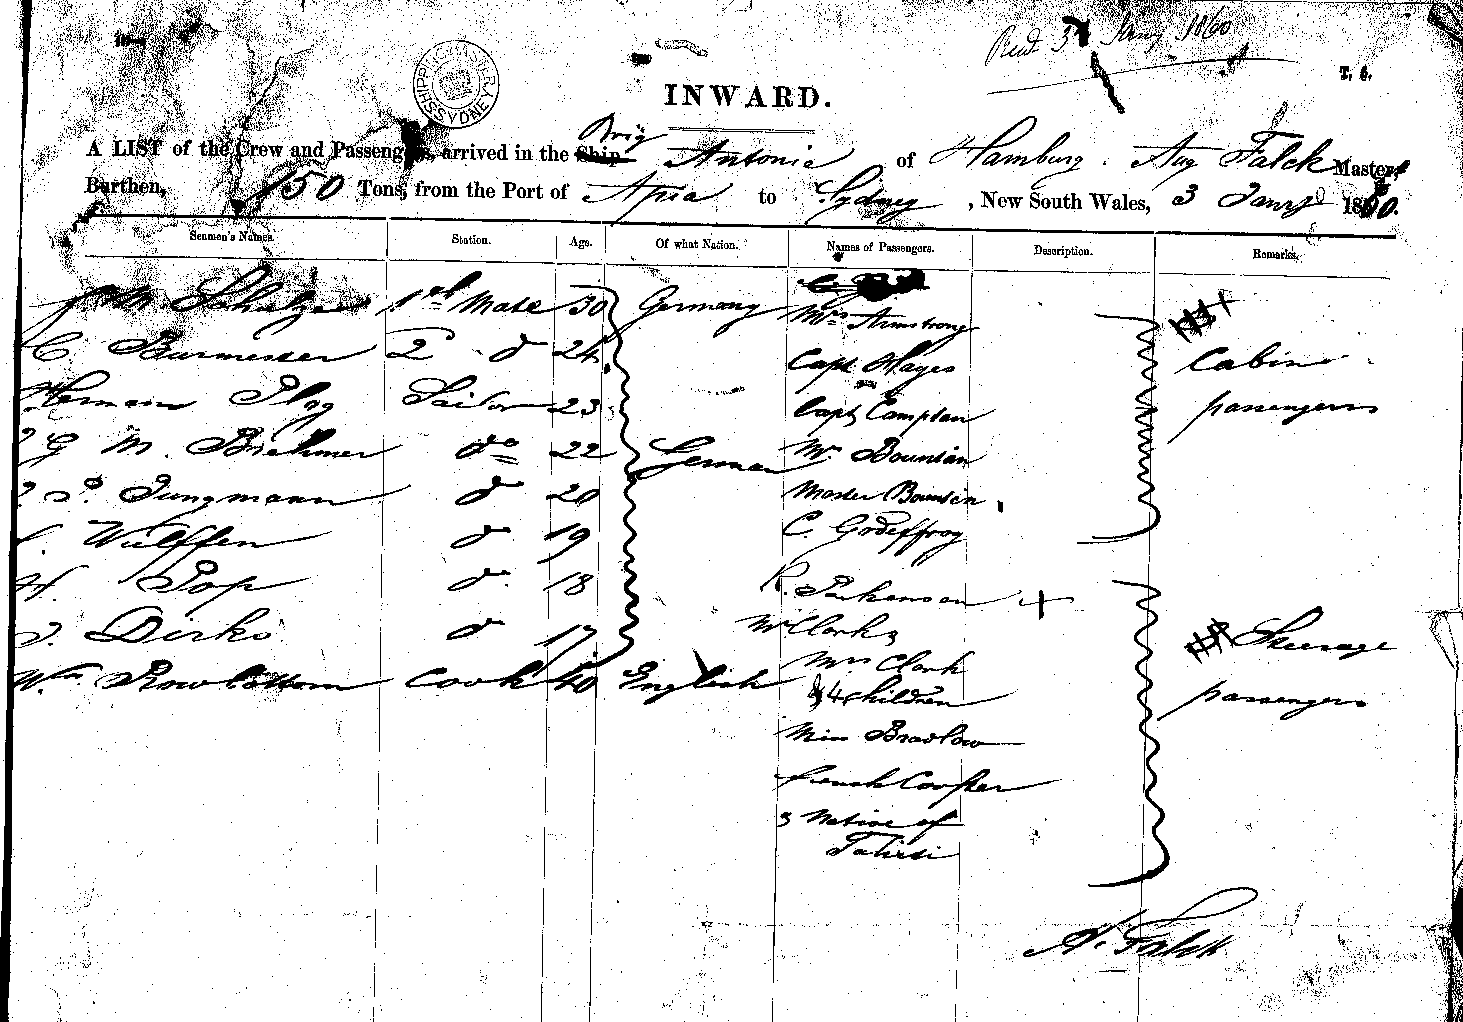 Recd 3rd Jany 1860
T. 6.
SHIPPING MASTER SYDNEY
INWARD.
A LIST of the Crew and Passengers, arrived in the Ship Brig Antonia of Hamburg. Aug Falck Master,
Burthen, 150 Tons, from the Port of Apia to Sydney, New South Wales, 3 Jany 1860.
Seamen's Names. Station. Age. Of what Nation. Names of Passengers. Description. Remarks.
M Schultze 1st Mate 30 Germany Mrs Armstrong
C Burmester 2 d 24 Capt Hayes Cabin
Herman Plog Sailor 23 Capt Campton passengers
G M. Brehmer do 22 German Mr Bounsin
P. Jungmann d 20 Master Bounsin
Wulffen d 19 C. Godeffroy
H. Pop d 18 R. Parkenson +
Dirks d 17 Mr Clark Steerage
Wm Rowbottom Cook 40 English Mrs Clark passengers
4 Children
Miss Bradlow
french Coofter
3 Native of
Tahiti
A. Falck